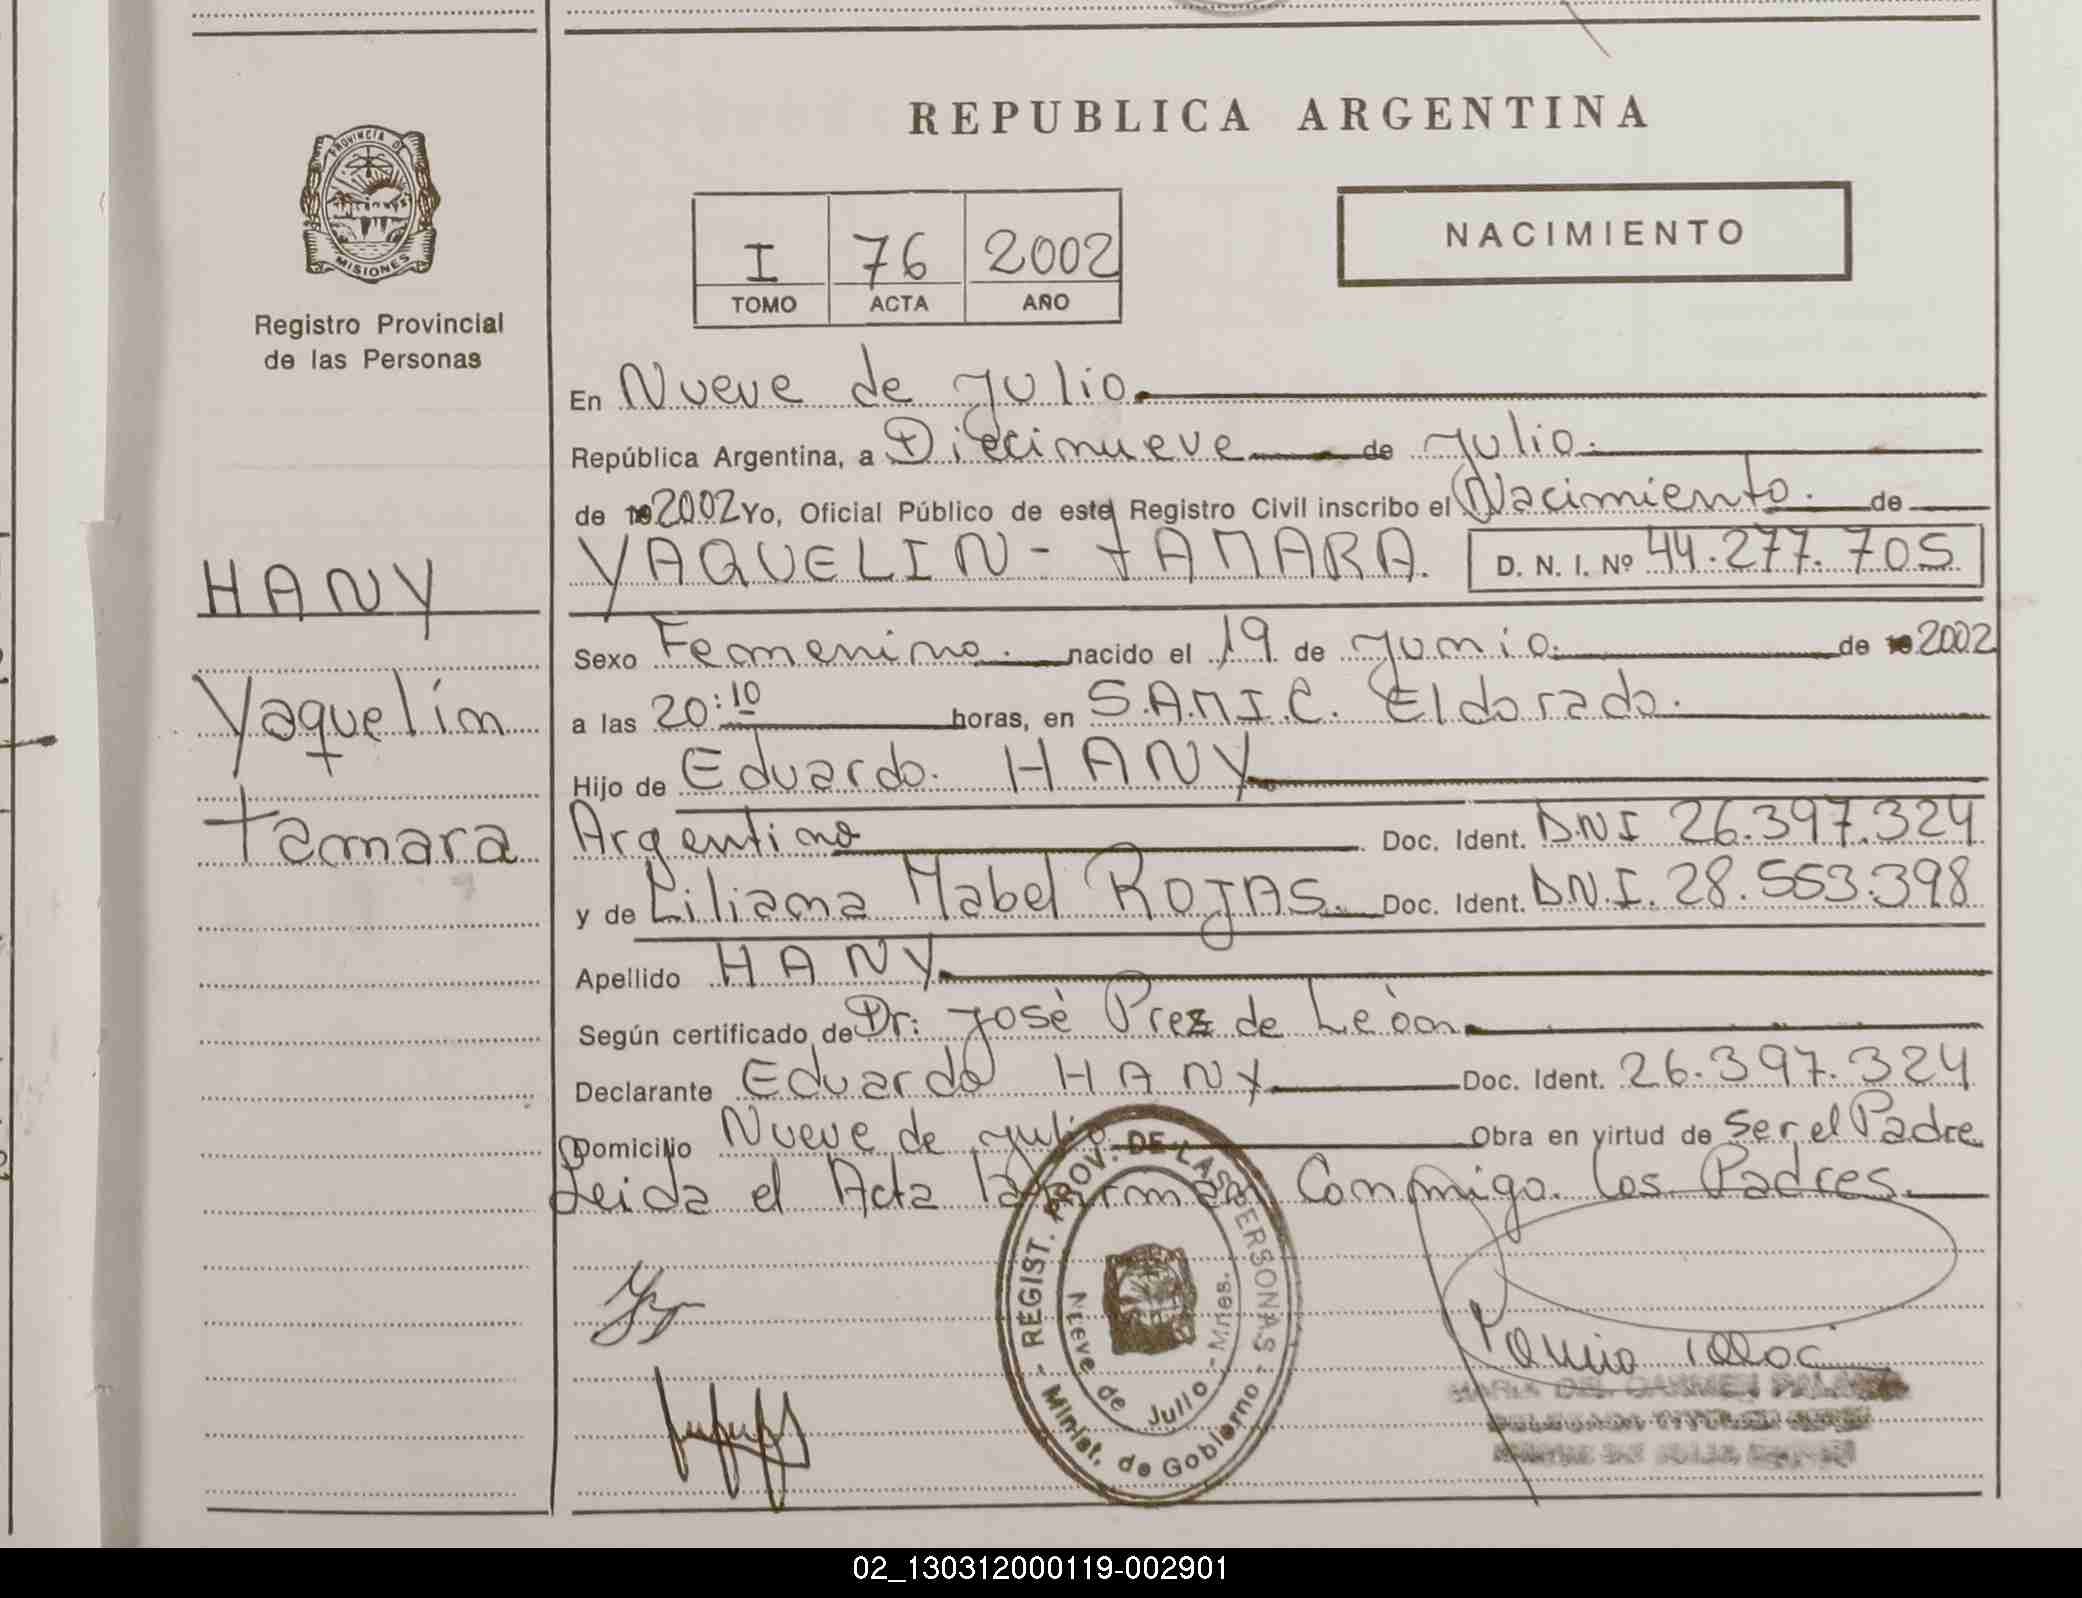 REPUBLICA ARGENTINA
PROVINCIA DE
MISIONES
Registro Provincial
de las Personas
I 76 2002
TOMO ACTA AÑO
NACIMIENTO
HANY
Yaquelin
tamara
En Nueve de Julio.
República Argentina, a Diecinueve de Julio.
de 19 2002 Yo, Oficial Público de este Registro Civil inscribo el Nacimiento. de
YAQUELIN - TAMARA. D. N. I. Nº 44.277.705
Sexo Femenino. nacido el 19 de Junio. de 19 2002
a las 20:10 horas, en S.A.M.I.C. Eldorado.
Hijo de Eduardo. HANY
Argentino Doc. Ident. D.N.I 26.397.324
y de Liliana Mabel ROJAS. Doc. Ident. D.N.I. 28.553.398
Apellido HANY
Según certificado de Dr: José Prez de Leòn
Declarante Eduardo HANY Doc. Ident. 26.397.324
Domicilio Nueve de Julio Obra en virtud de Ser el Padre
Leida el Acta la firman Conmigo. los Padres.
- REGIST. PROV. DE LAS PERSONAS -
Minist. de Gobierno
Nueve de Julio - Mnes.
MARIA DEL CARMEN
02_130312000119-002901